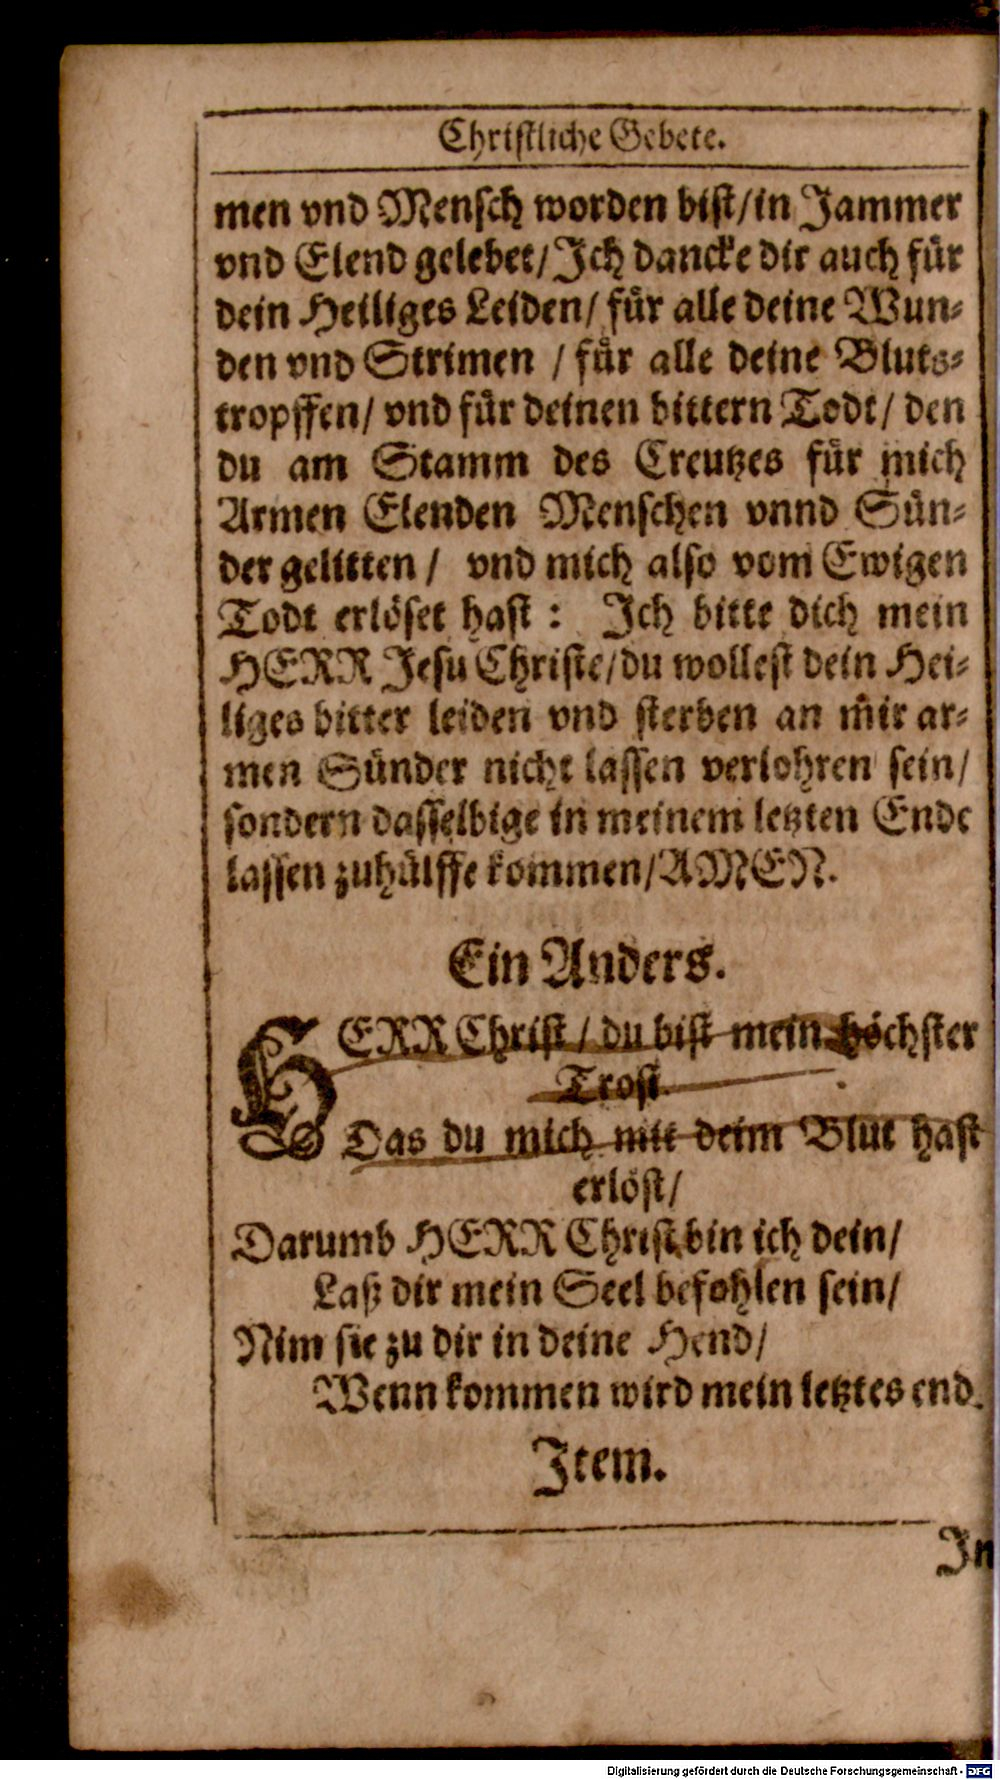 Christliche Gebete.
men vnd Mensch worden bist/in Jammer
vnd Elend gelebet/Ich dancke dir auch für
dein Heiliges Leiden/ für alle deine Wun-
den vnd Strimen / für alle deine Bluts-
tropffen/ vnd für deinen bittern Todt/ den
du am Stamm des Creutzes für mich
Armen Elenden Menschen vnnd Sün-
der gelitten / vnd mich also vom Ewigen
Todt erlöset hast : Ich bitte dich mein
HERR Jesu Christe/du wollest dein Hei-
liges bitter leiden vnd sterben an mir ar-
men Sünder nicht lassen verlohren sein/
sondern dasselbige in meinem letzten Ende
lassen zuhülffe kommen/AMEN.
Ein Anders.
HERR Christ / du bist mein höchster
Trost.
Das du mich mit deim Blut hast
erlöst/
Darumb HERR Christ bin ich dein/
Laß dir mein Seel befohlen sein/
Nim sie zu dir in deine Hend/
Wenn kommen wird mein letztes end.
Item.
In
Digitalisierung gefördert durch die Deutsche Forschungsgemeinschaft - DFG